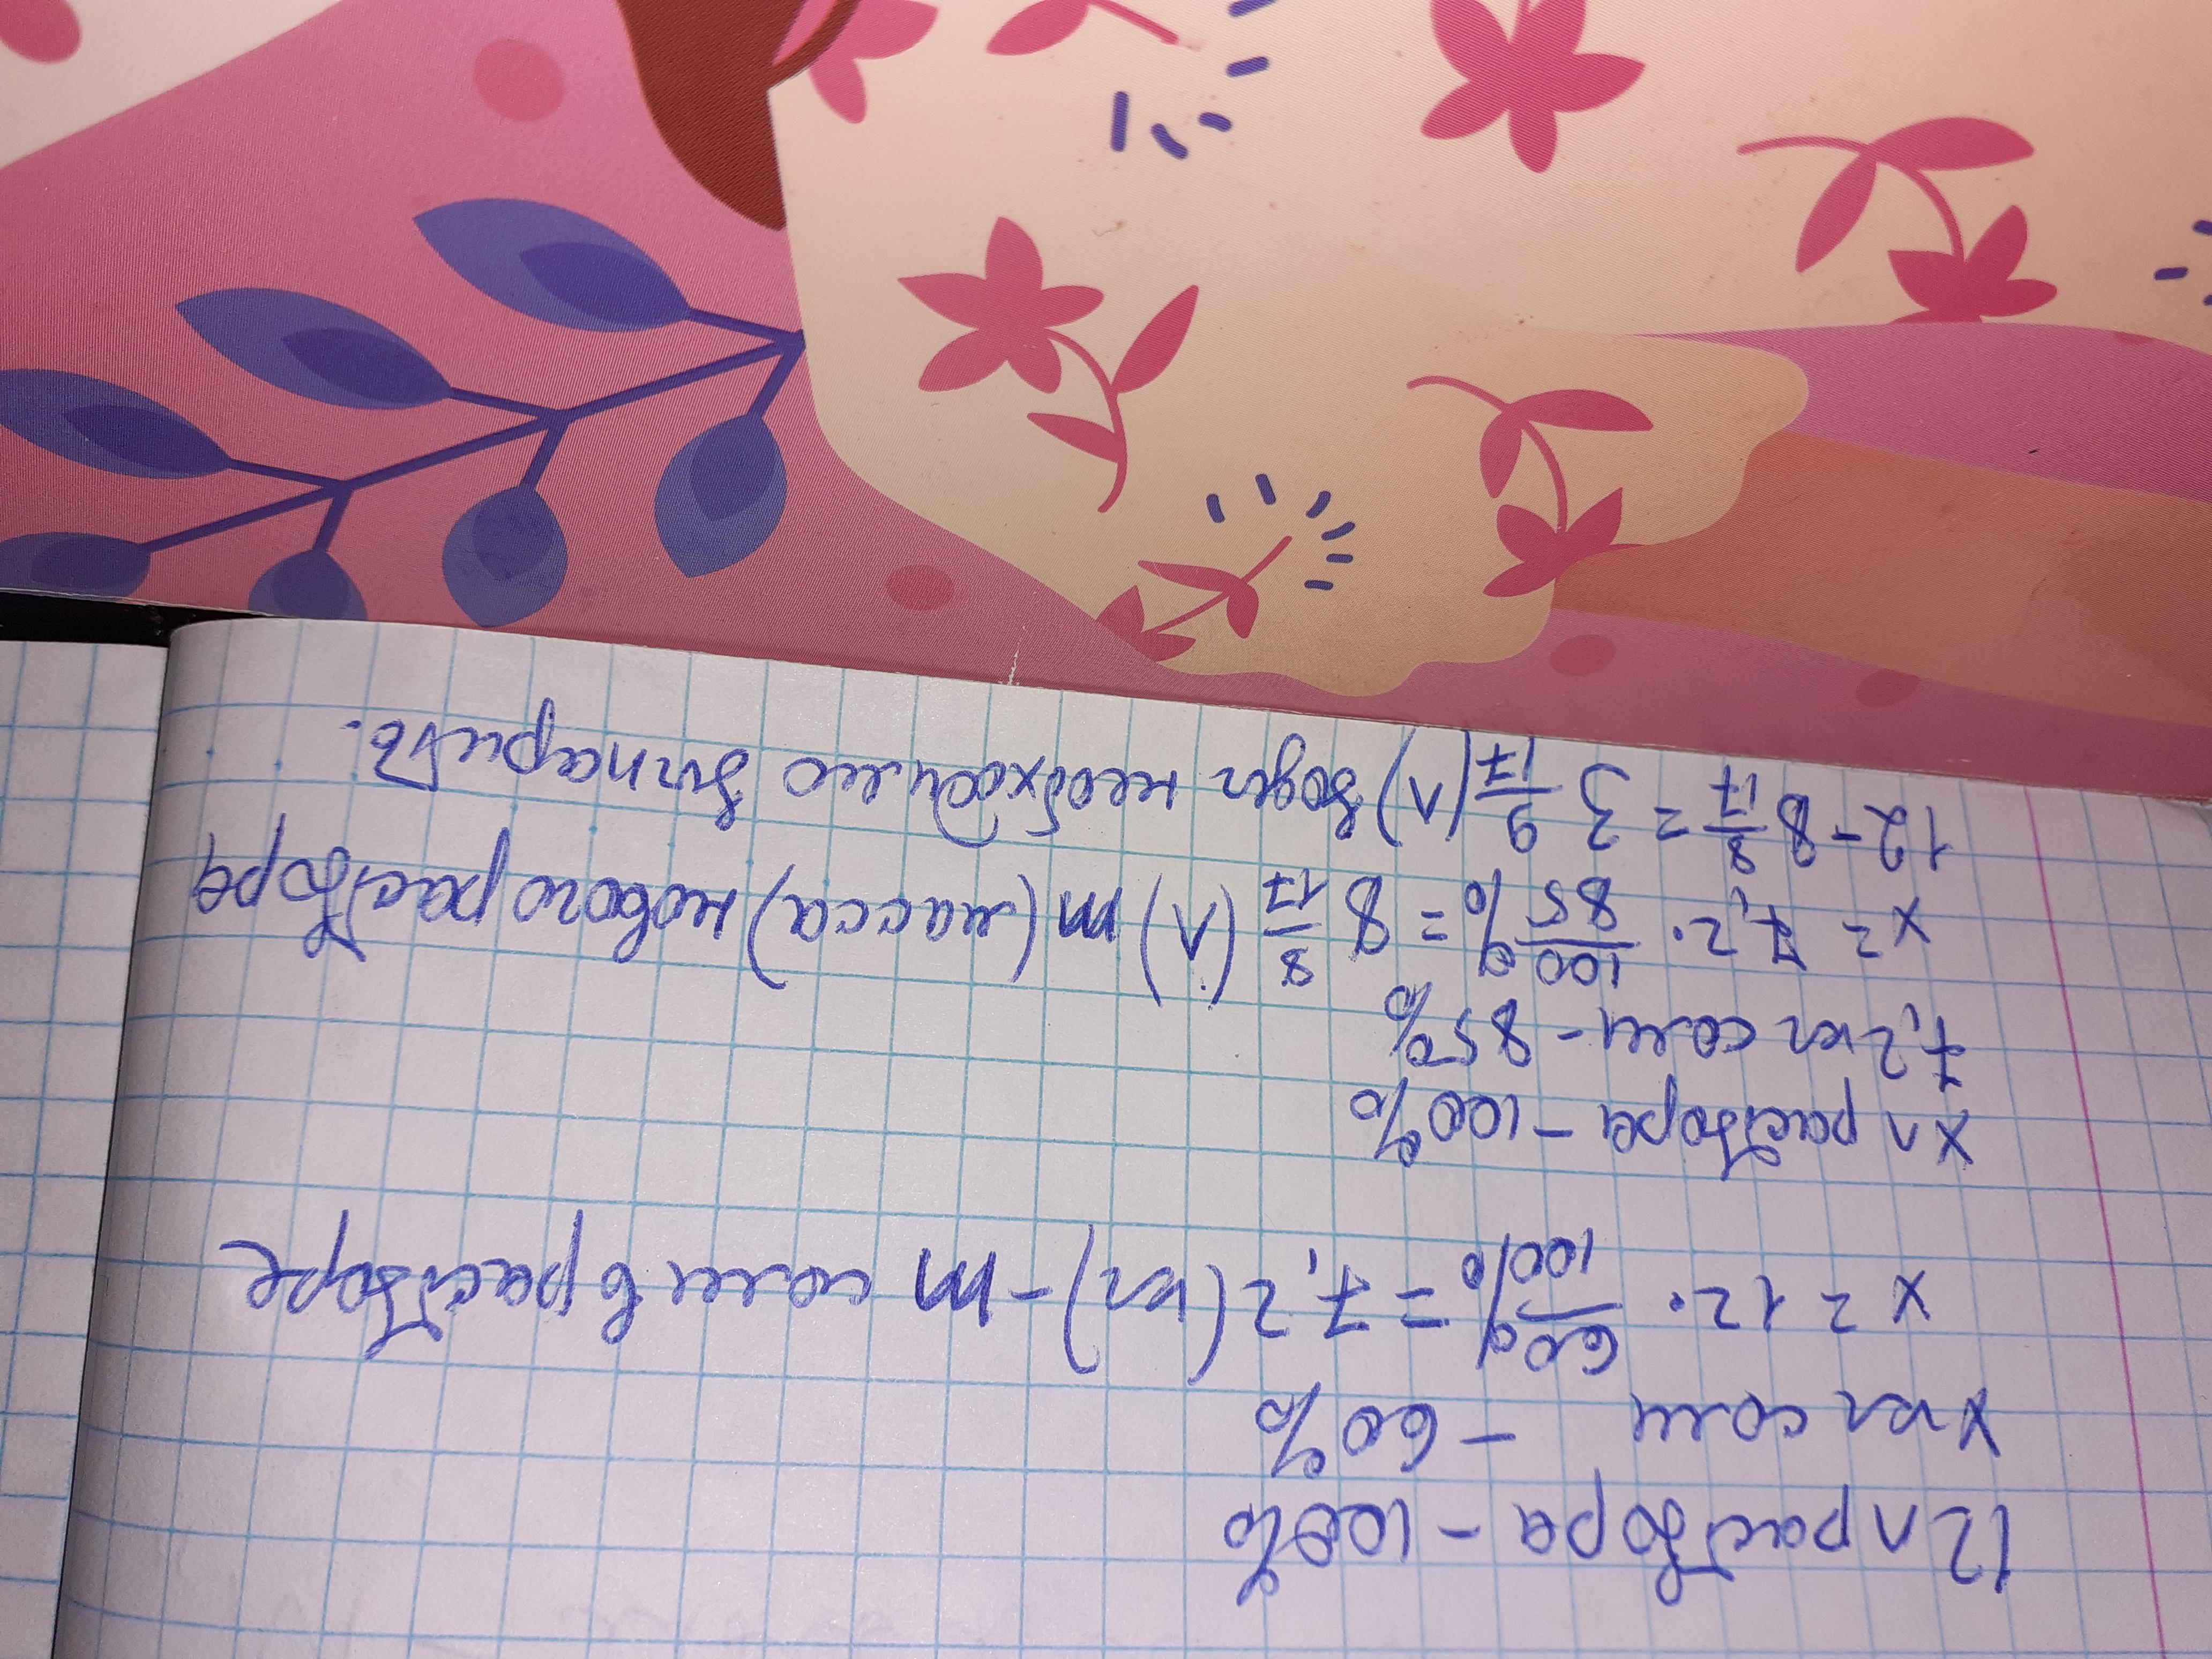 12л раствора - 100%
x кг соли - 60%
x = 12 · 60%/100% = 7,2 (кг) - m соли в растворе
xл раствора - 100%
7,2 кг соли - 85%
x = 7,2 · 100%/85% = 8 8/17 (л) m (масса) нового раствора
12 - 8 8/17 = 3 9/17 (л) воды необходимо выпарить.